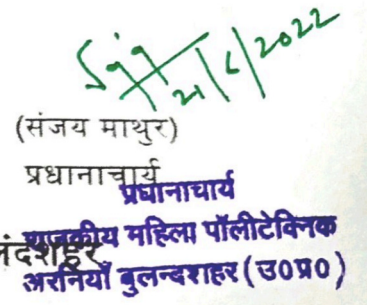 21/6/2022
(संजय माथुर)
प्रधानाचार्य
प्रधानाचार्य
राजकीय महिला पॉलीटेक्निक
अरनियाँ बुलन्दशहर (उ०प्र०)